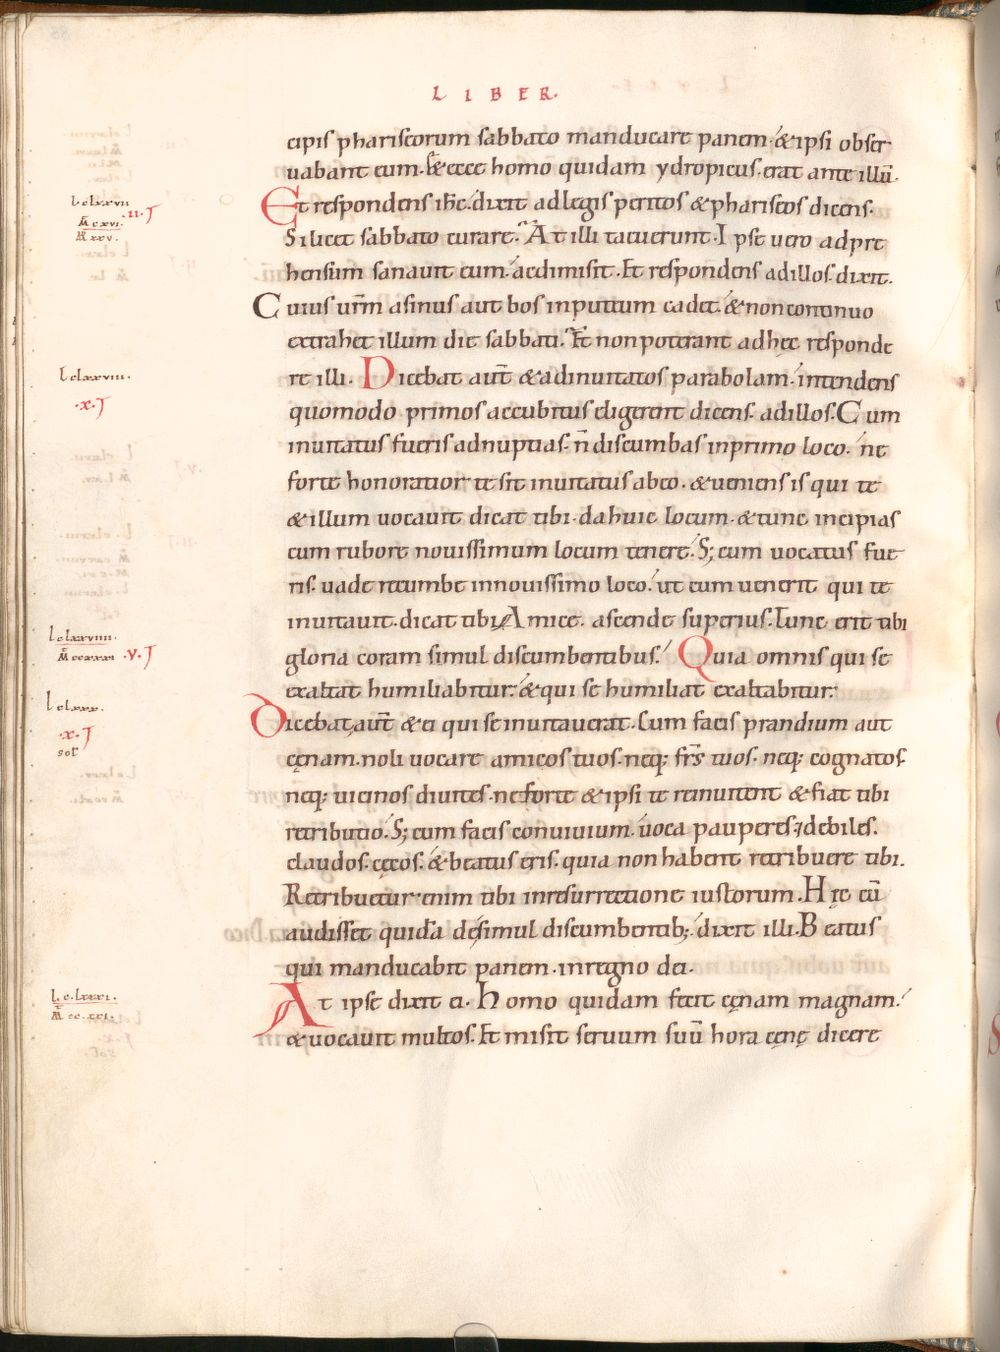 LIBER.
cipis phariseorum sabbato manducare panem. & ipsi obser
uabant eum. & ecce homo quidam ydropicus. erat ante illū.
Et respondens ihc̄. dixit ad legis peritos & phariseos dicens.
Si licet sabbato curare. At illi tacuerunt. Ipse uero adpre
hensum sanauit eum. ac dimisit. Et respondens ad illos dixit.
Cuius ur̄m asinus aut bos in puteum cadet. & non continuo
extrahet illum die sabbati. Et non poterant ad hęc responde
re illi. Dicebat aut̄ & ad inuitatos parabolam. intendens
quomodo primos accubitus eligerent dicens ad illos. Cum
inuitatus fueris ad nuptias. n̄ discumbas in primo loco. ne
forte honoratior te sit inuitatus ab eo. & ueniens is qui te
& illum uocauit dicat tibi. da huic locum. & tunc incipias
cum rubore nouissimum locum tenere. S; cum uocatus fue
ris. uade recumbe in nouissimo loco. ut cum uenerit qui te
inuitauit. dicat tibi. Amice. ascende superius. Tunc erit tibi
gloria coram simul discumbentibus. Quia omnis qui se
exaltat humiliabitur. & qui se humiliat exaltabitur.
Dicebat aut̄ & ei qui se inuitauerat. Cum facis prandium aut
cęnam. noli uocare amicos tuos. neq; fr̄s tuos. neq; cognatos.
neq; uicinos diuites. ne forte & ipsi te reinuitent & fiat tibi
retributio. S; cum facis conuiuium. uoca pauperes. ⁊ debiles.
claudos. cęcos. & beatus eris. quia non habent retribuere tibi.
Retribuetur enim tibi in resurrectione iustorum. Hęc cū
audisset quidā de simul discumbentib;. dixit illi. Beatus
qui manducabit panem. in regno dei.
At ipse dixit ei. Homo quidam fecit cęnam magnam.
& uocauit multos. Et misit seruum suū hora cęnę dicere
L clxxvii
M̄ cxvi. .ii.⁊
M̄ xxv.
L clxxviii.
.x.⁊
L clxxviiii.
M̄ ccxxxi .v.⁊
L clxxx.
.x.⁊
sol̄
L. c. lxxxi.
M̄ cc.xxi.